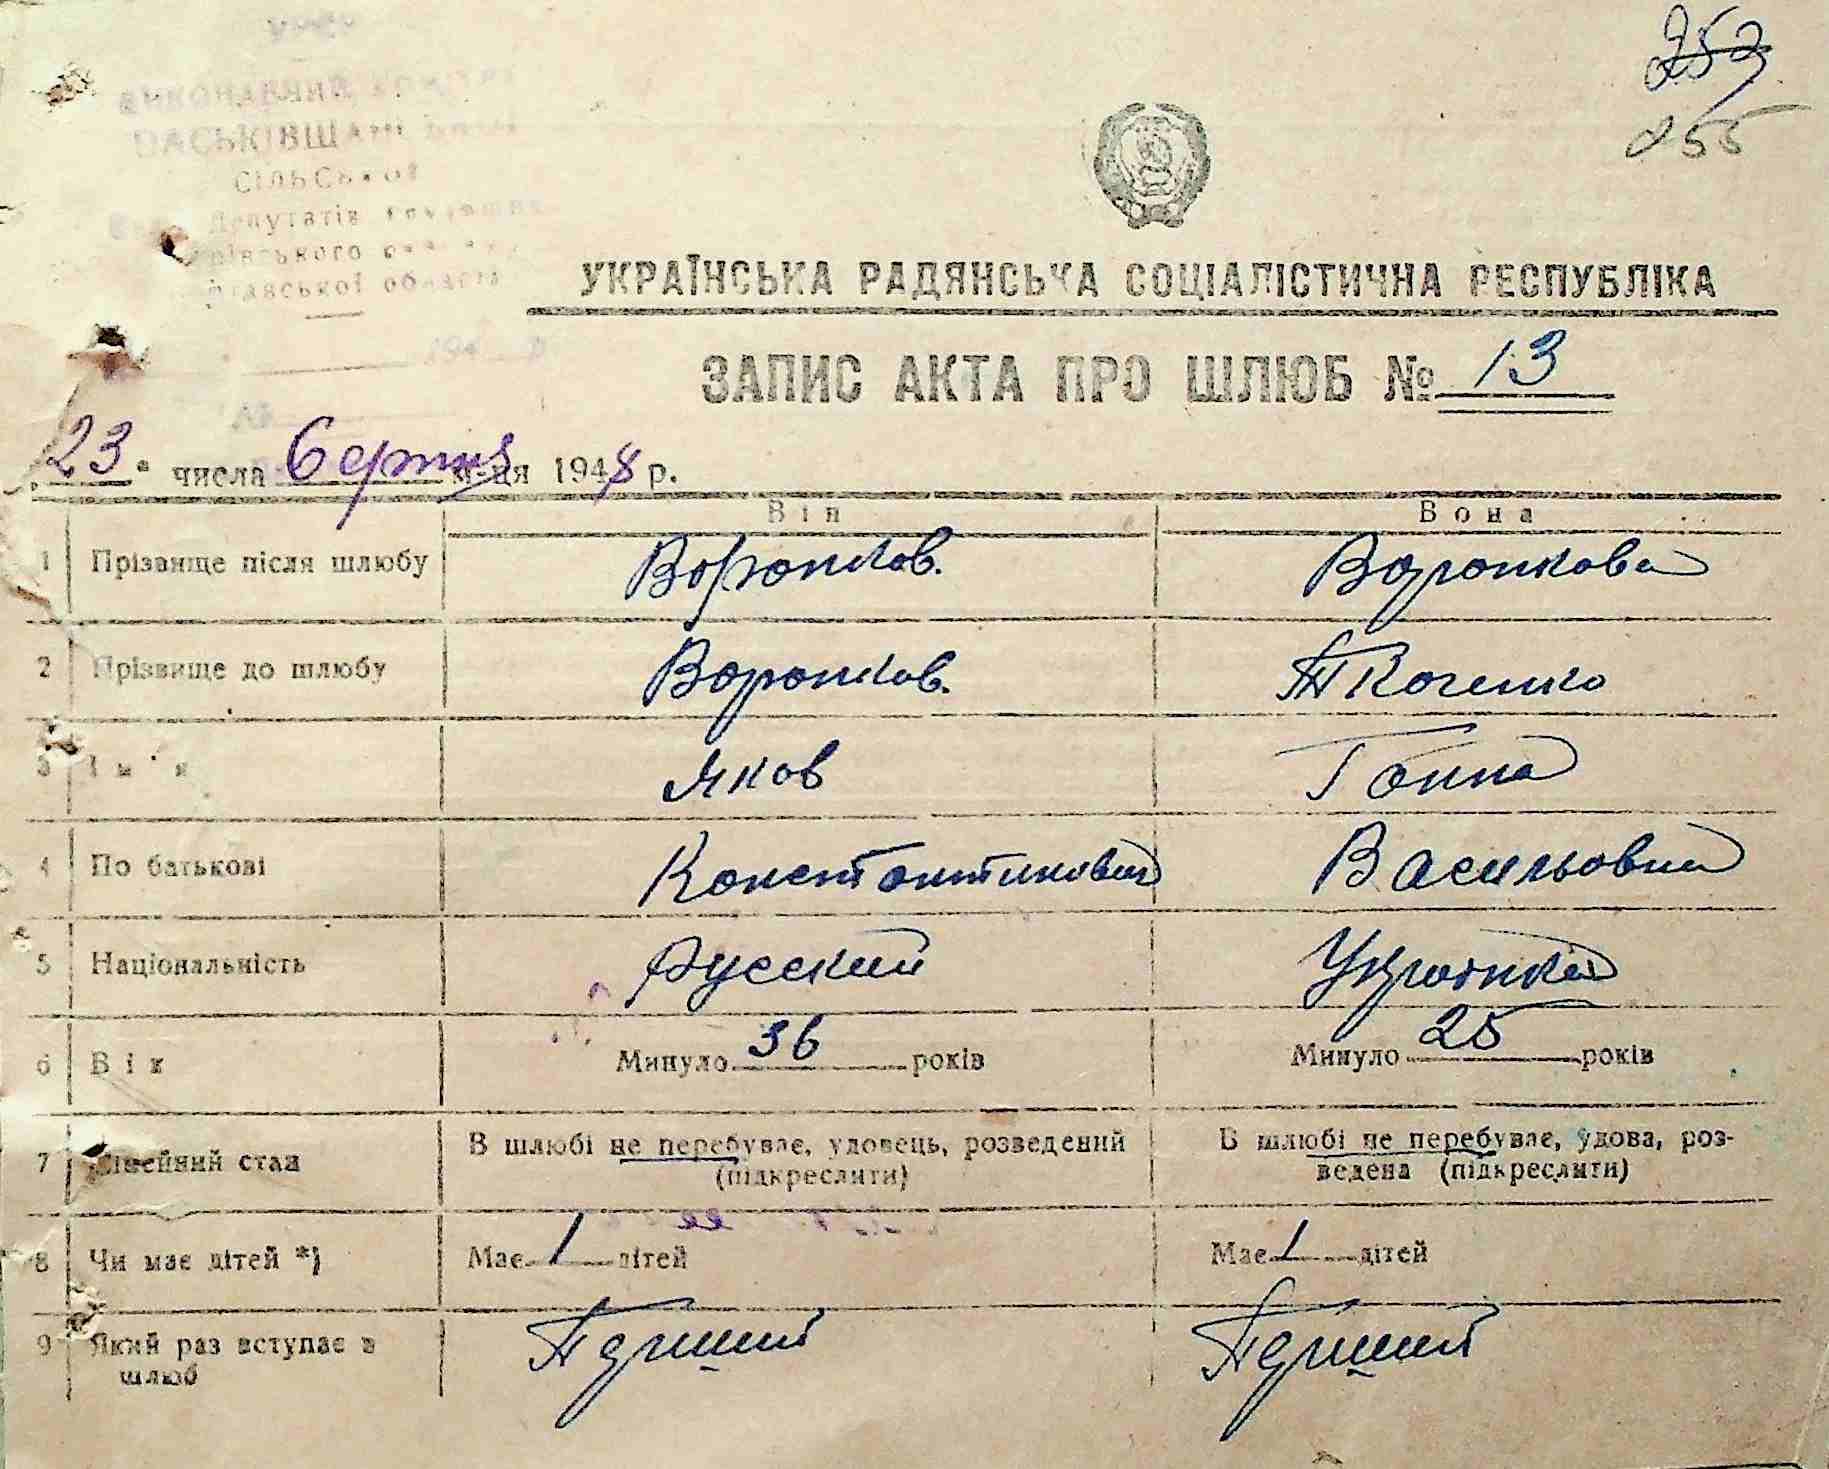 252
255
ВИКОНАВЧИЙ
СІЛЬСЬКОЇ
Депутатів
області
УКРАЇНСЬКА РАДЯНСЬКА СОЦІАЛІСТИЧНА РЕСПУБЛІКА
ЗАПИС АКТА ПРО ШЛЮБ № 13
23 числа Серпня м-ця 1948 р.
Він Вона
1 Прізвище після шлюбу Воронков. Воронкова
2 Прізвище до шлюбу Воронков. Ткаченко
3 Ім'я Яков Ганна
4 По батькові Константинович Васильовна
5 Національність Русский Українка
6 Вік Минуло 36 років Минуло 25 років
7 Сімейний стан В шлюбі не перебуває, удовець, розведений (підкреслити) В шлюбі не перебуває, удова, роз-
ведена (підкреслити)
8 Чи має дітей *) Має 1 дітей Має 1 дітей
9 Який раз вступає в Перший Перший
шлюб